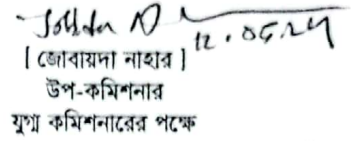 ১২.০৫.২৫
[ জোবায়দা নাহার ]
উপ-কমিশনার
যুগ্ম কমিশনারের পক্ষে